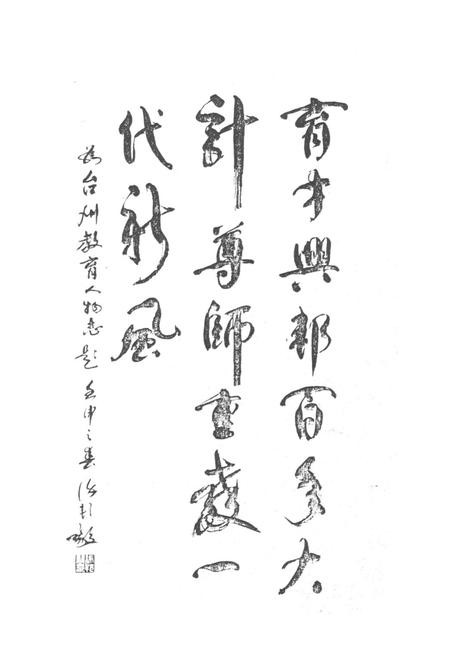 育才興邦百年大
計尊師重教一
代新風
為台州教育人物志題 壬申之春